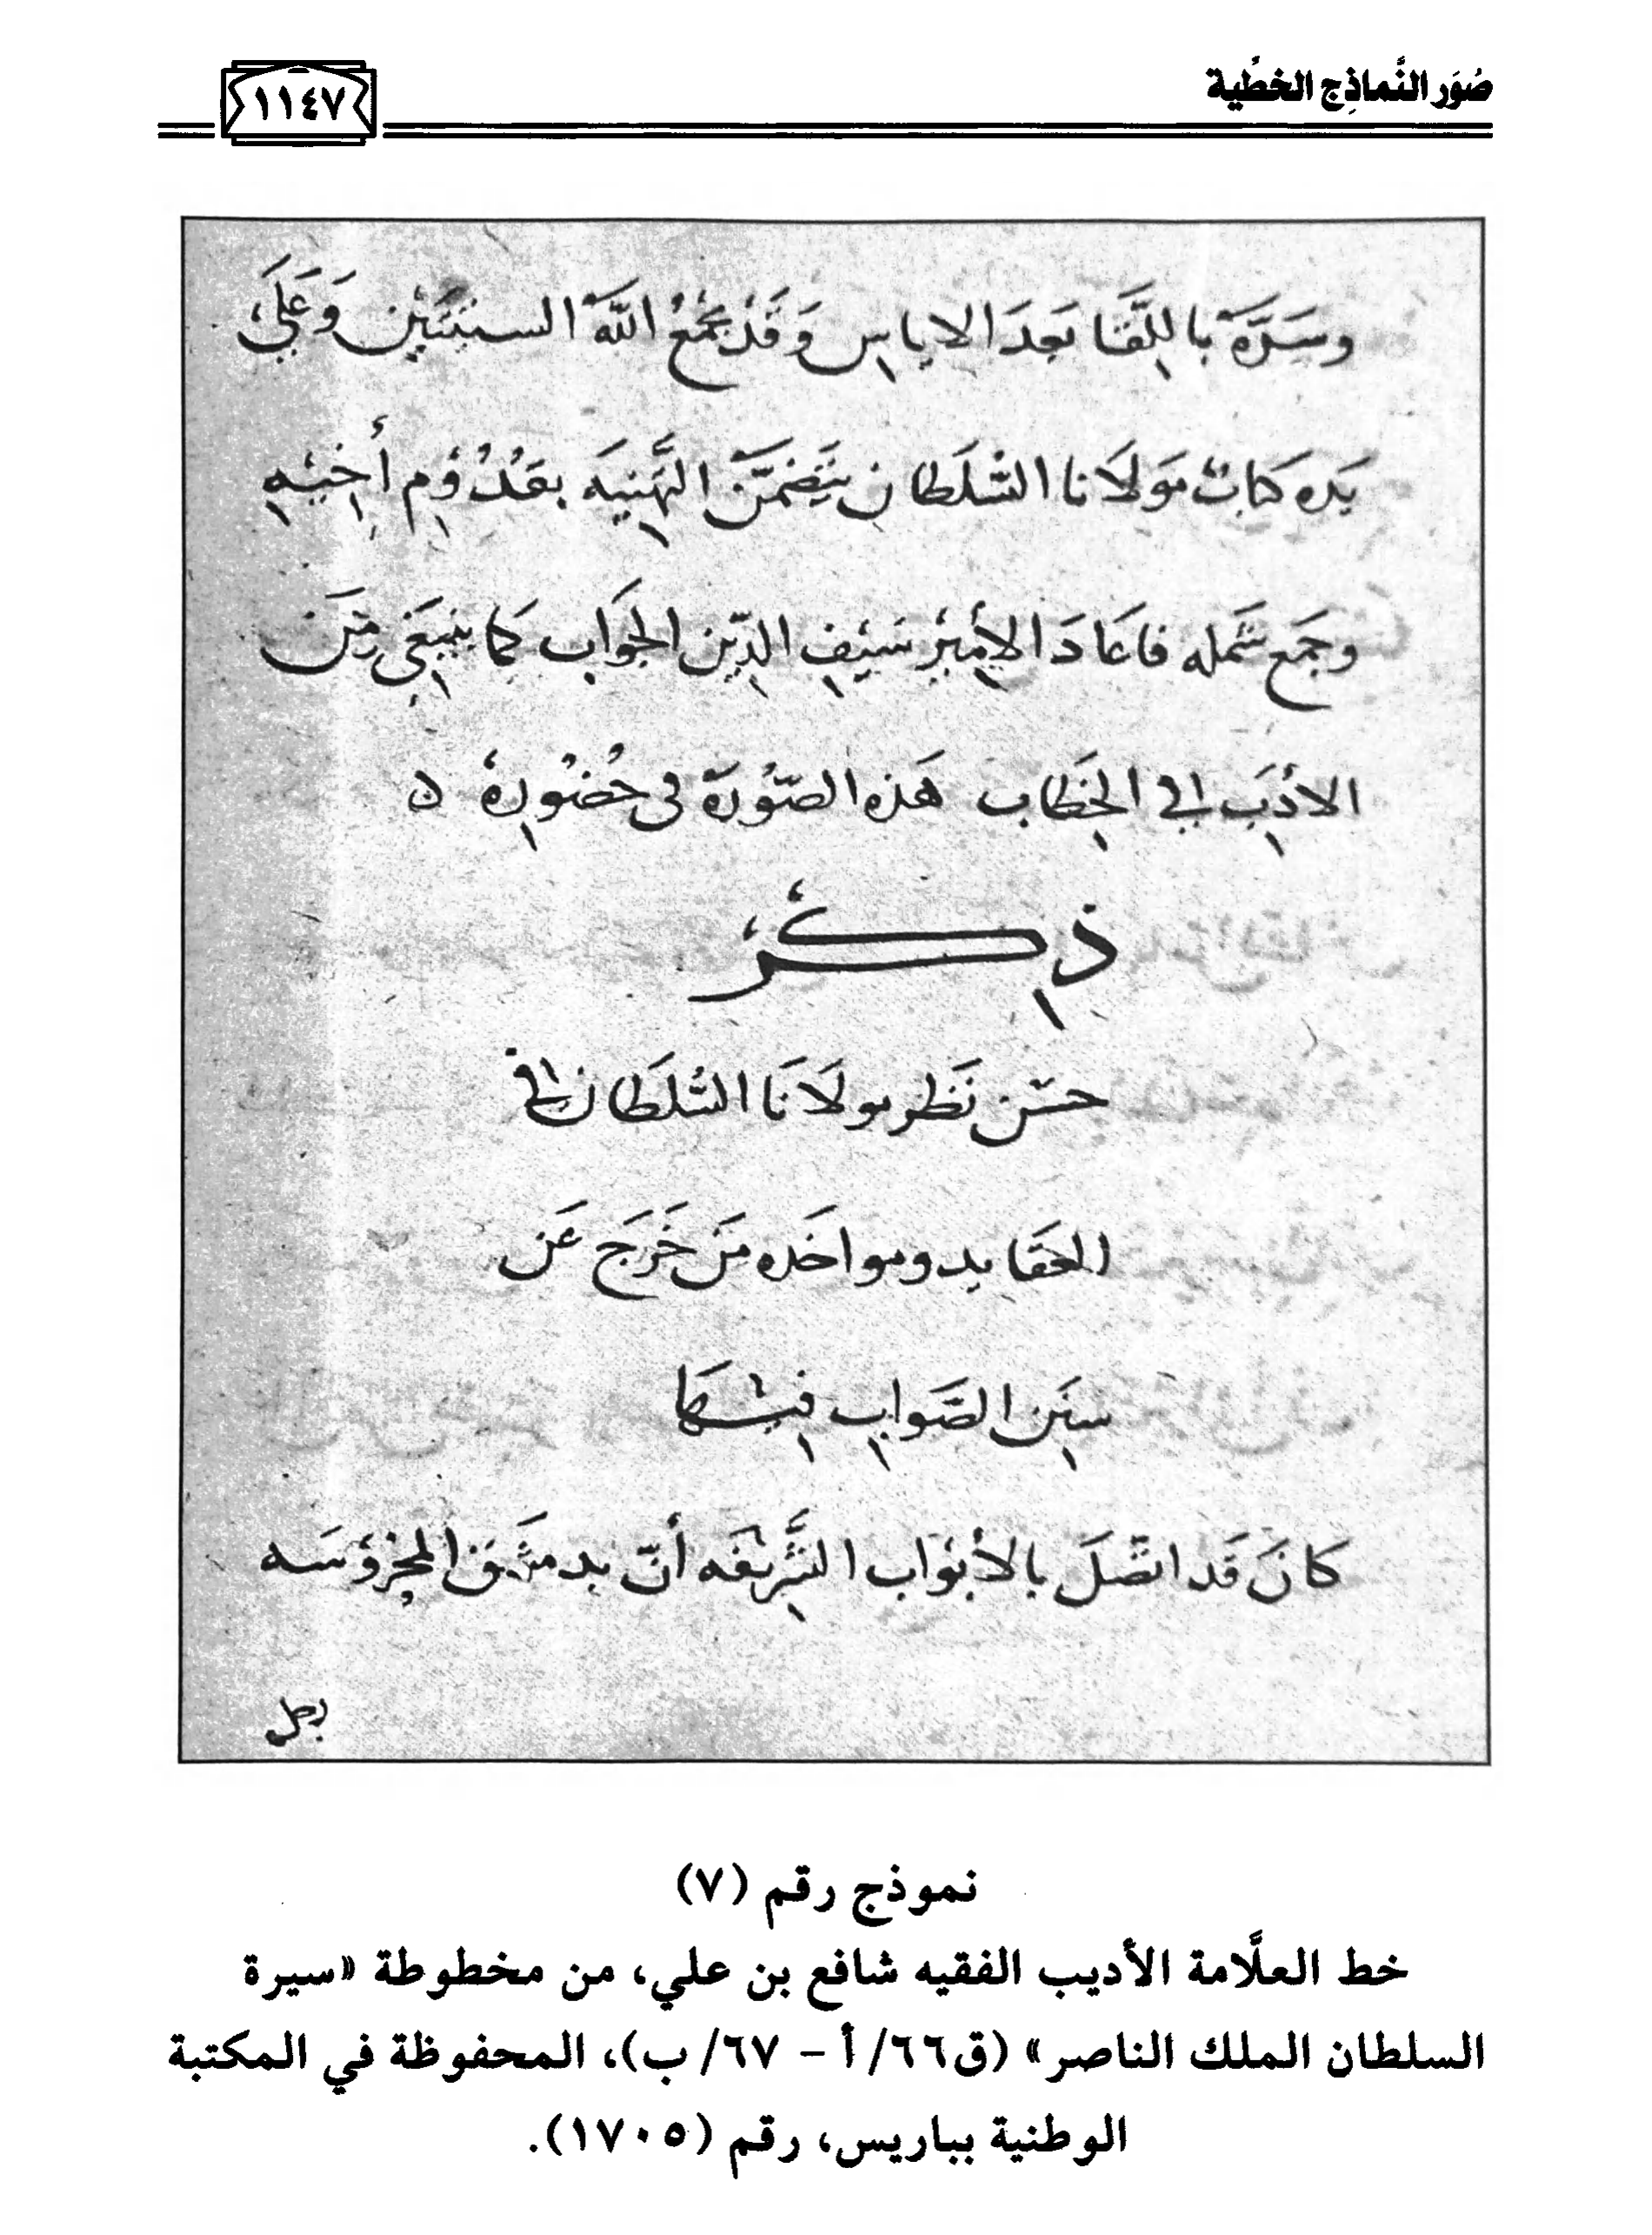 صُوَر النَّماذِج الخطِّية
١١٤٧
وسَرَّهَ باللِّقَا بَعدَ الاياس وَقَدْ يجمَعُ اللَّهَ الستيتَين وَعَلَى
يَدِه كتابُ مَولَانا السُّلطان يتضمَّن التَّهنيَه بقدُوْم أَخيْهِ
وجمَع شَمله فاعَادَ الأمِيرْ سَيْف الدِّين الجوَاب كَما يَنبَغي مِن
الأدَب في الخِطاب هَذه الصّورَة في حُضُورِهْ ه
ذِكْرْ
حسْن نَظر مولَانَا السُّلطان في
العقايد ومواخَذه مَن خَرَجَ عَن
سنَن الصَّواب فيْهَا
كانَ قَد اتّصَلَ بالأبوَاب الشَّرِيفَه أنّ بدمَشق المحرُوْسَه
رجل
نموذج رقم (٧)
خط العلَّامة الأديب الفقيه شافع بن علي، من مخطوطة «سيرة
السلطان الملك الناصر» (ق٦٦/ أ - ٦٧/ ب)، المحفوظة في المكتبة
الوطنية بباريس، رقم (١٧٠٥).